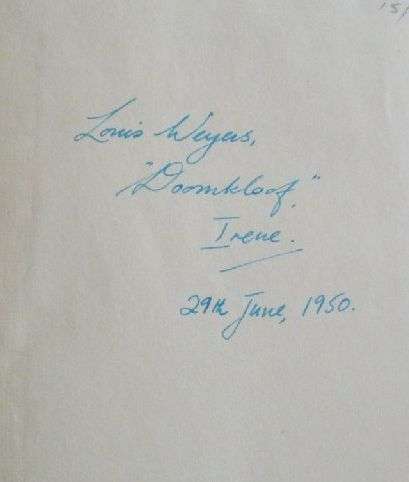 Louis Weyers,
"Doornkloof,"
Irene.
29th June, 1950.
15/